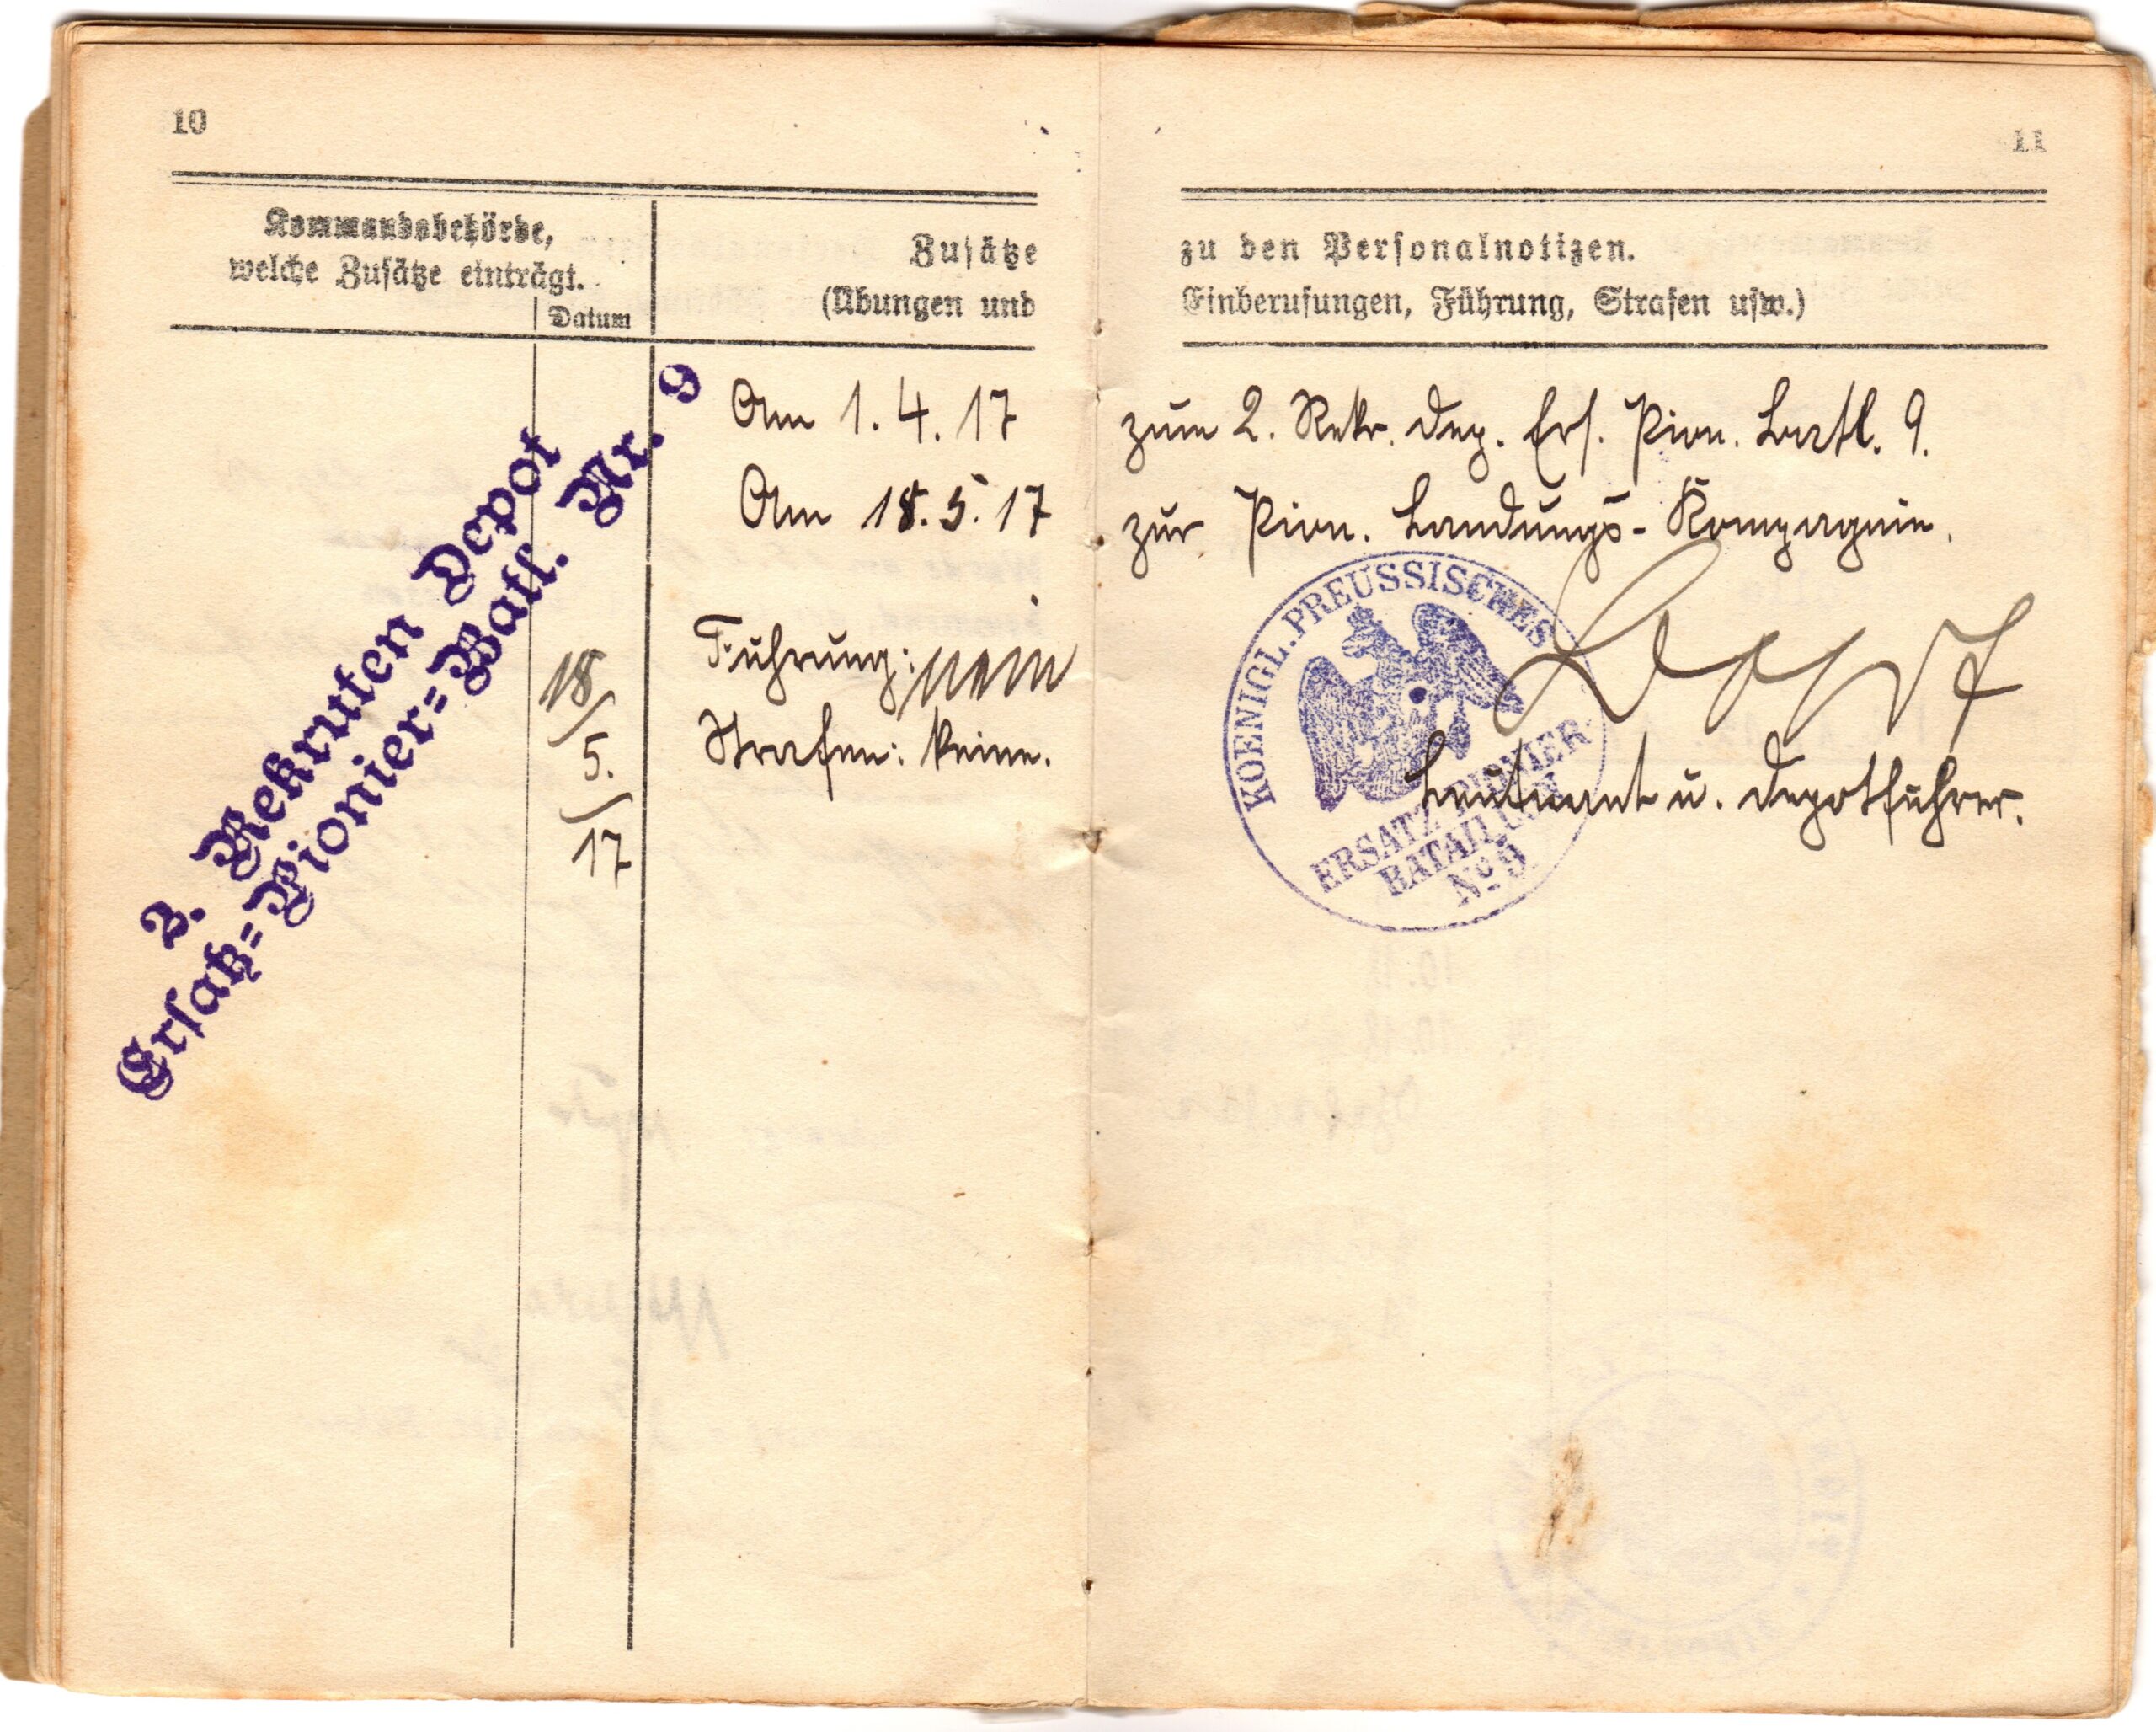 10
Kommandobehörde,
welche Zusätze einträgt.
Datum
Zusätze
(Übungen und
2. Rekruten Depot
Ersatz=Pionier=Batl. Nr. 9
Am 1. 4. 17
Am 18. 5. 17
18/5./17
Führung:
Strafen: keine.
11
zu den Personalnotizen.
Einberufungen, Führung, Strafen usw.)
zum 2. Rekr. Dep. Ers. Pion. Batl. 9.
zur Pion. Landungs-Kompagnie.
KOENIGL. PREUSSISCHES
ERSATZ PIONIER
BATAILLON
No 9
Leutnant u. Depotführer.